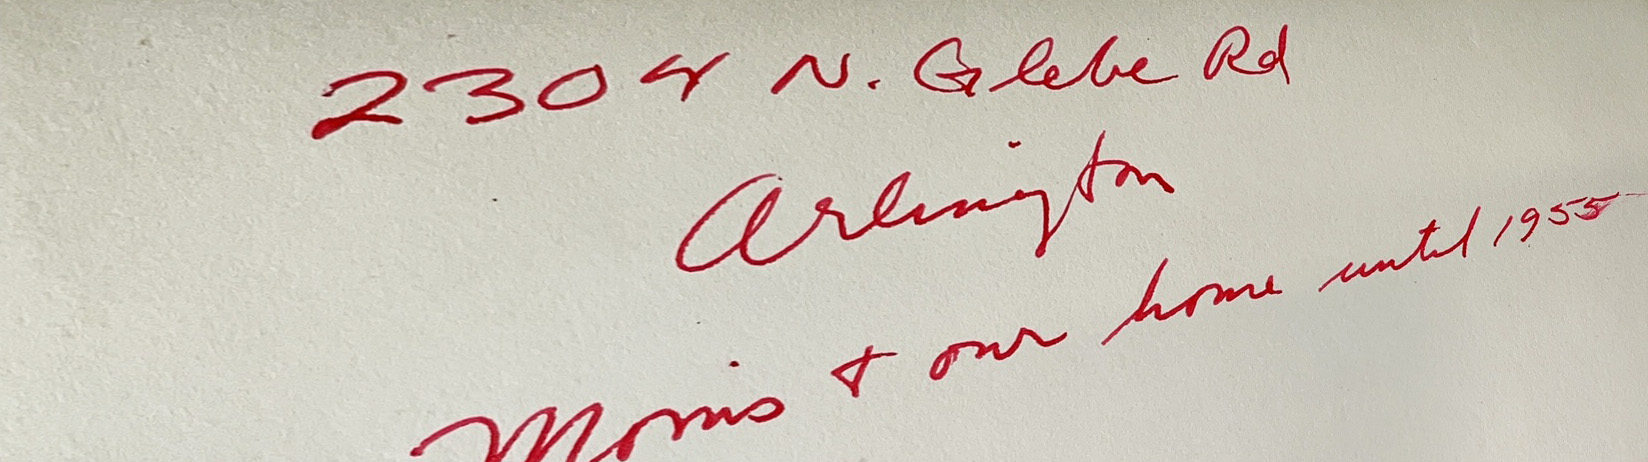 2304 N. Glebe Rd
Arlington
Mom's + our home until 1955